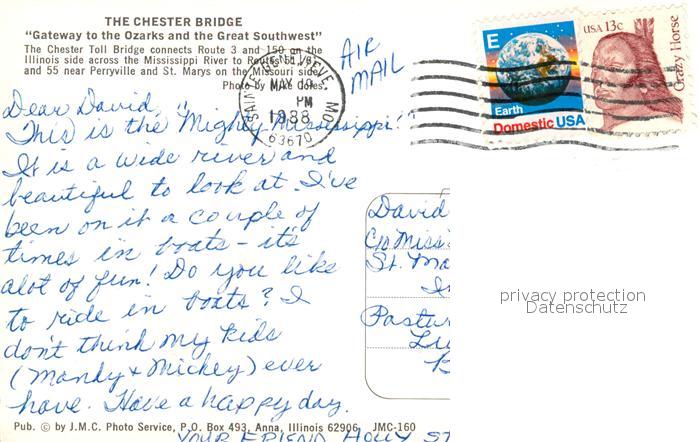 THE CHESTER BRIDGE
"Gateway to the Ozarks and the Great Southwest"
The Chester Toll Bridge connects Route 3 and 150 on the
Illinois side across the Mississippi River to Routes 51, 61,
and 55 near Perryville and St. Marys on the Missouri side.
Photo by
AIR
MAIL
SAINTE GENEVIEVE MO
MAY 19
PM
1988
63670
E
Earth
Domestic USA
USA 13c
Crazy Horse
Dear David,
This is the "Mighty Mississippi!"
It is a wide river and
beautiful to look at. I've
been on it a couple of
times in boats - it's
alot of fun! Do you like
to ride in boats? I
don't think my kids
(Mandy & Mickey) ever
have. Have a happy day.
YOUR FRIEND HOLLY ST
David
c/o Miss
St. Ma
Pastur
privacy protection
Datenschutz
Pub. © by J.M.C. Photo Service, P.O. Box 493, Anna, Illinois 62906 JMC-160